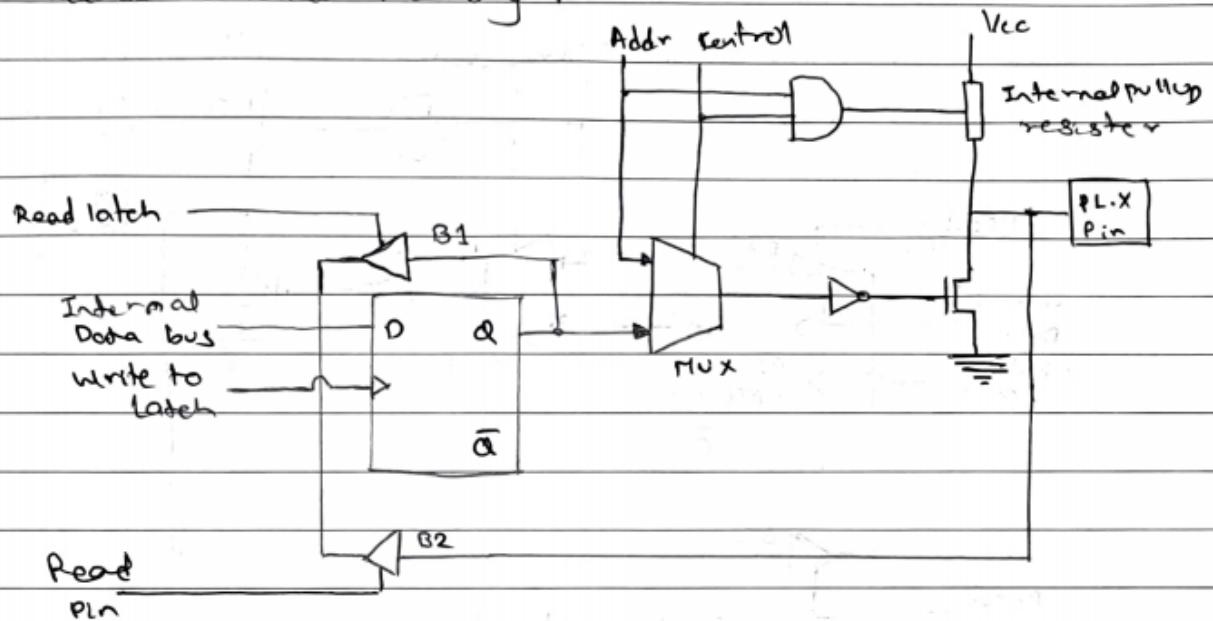 Addr Control
Vcc
Internal pullup
resister
Read latch
B1
P1.X
Pin
Internal
Data bus
D Q
MUX
Write to
Latch
Q̅
B2
Read
Pin